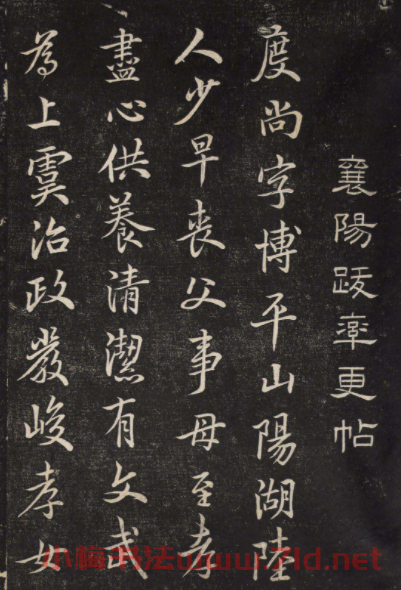 襄陽跋率更帖
度尚字博平山陽湖陸
人少早喪父事母至孝
盡心供養清潔有文武
為上虞治政嚴峻孝女
小梅书法www.7ld.net